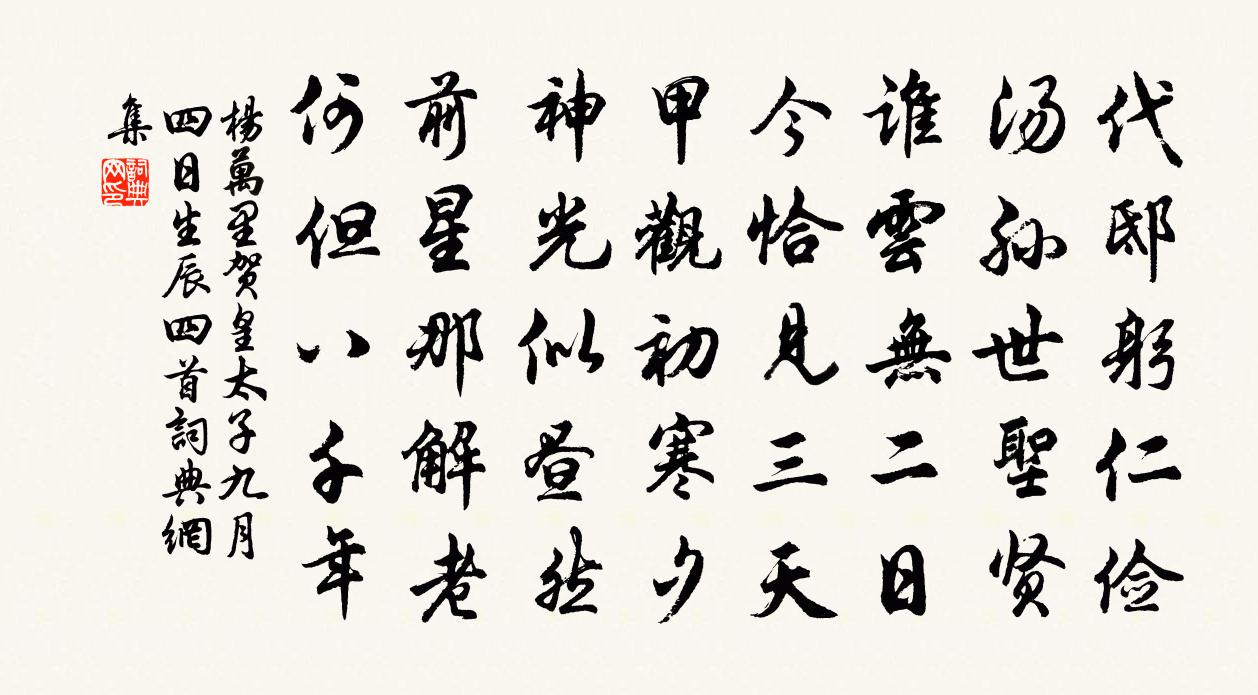 代邸躬仁俭
汤孙世聖贤
谁雲無二日
今恰見三天
甲觀初寒夕
神光似昼然
前星那解老
何但八千年
楊萬里贺皇太子九月
四日生辰四首詞典網
集
詞典網印